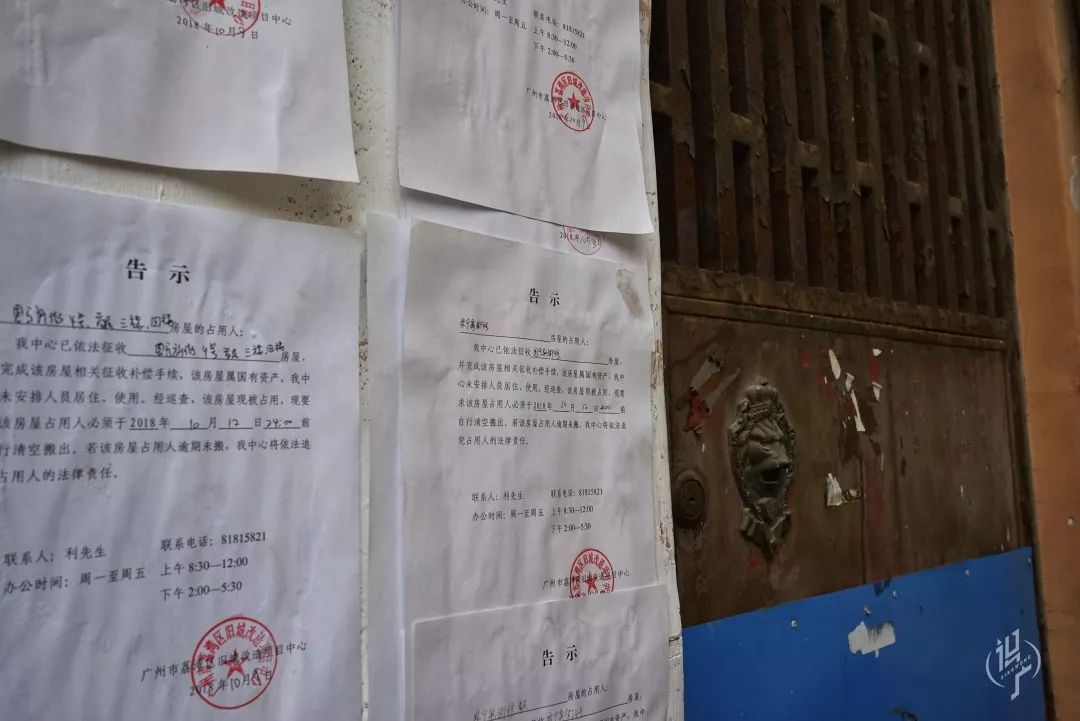 2018年10月9日
联系电话：81815821
办公时间：周一至周五 上午 8:30—12:00
下午 2:00—5:30
广州市荔湾区旧城改造项目中心
2018年10月9日
告 示
房屋的占用人：
我中心已依法征收 房屋，
完成该房屋相关征收补偿手续，该房屋属国有资产，我中
未安排人员居住、使用。经巡查，该房屋现被占用，现要
该房屋占用人必须于2018年 10 月 12 日 24:00 前
自行清空搬出。若该房屋占用人逾期未搬，我中心将依法追
占用人的法律责任。
联系人：利先生 联系电话：81815821
办公时间：周一至周五 上午 8:30—12:00
下午 2:00—5:30
广州市荔湾区旧城改造项目中心
2018年10月9日
告 示
房屋的占用人：
我中心已依法征收 房屋，
并完成该房屋相关征收补偿手续，该房屋属国有资产，我中
心未安排人员居住、使用。经巡查，该房屋现被占用，现要
求该房屋占用人必须于2018年 10 月 12 日 24:00 前
自行清空搬出。若该房屋占用人逾期未搬，我中心将依法追
究占用人的法律责任。
联系人：利先生 联系电话：81815821
办公时间：周一至周五 上午 8:30—12:00
下午 2:00—5:30
广州市荔湾区旧城改造项目中心
告 示
房屋的占用人：
房屋，